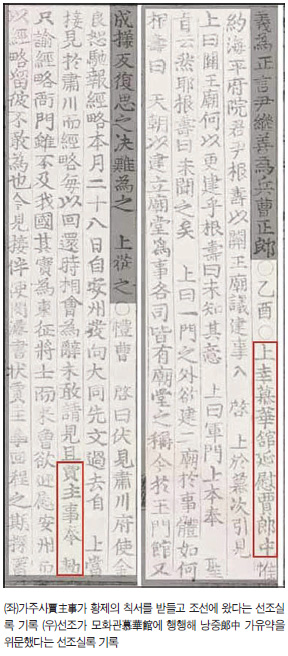 義為正言尹繼善為兵曹正郎○乙酉○上幸慕華館延慰賈郎中惟
約海平府院君尹根壽以關王廟議建事入 啓 上於幕次引見
上曰關王廟何以更建乎根壽曰未知其意 上曰軍門上本奉 聖
旨云然耶根壽曰未聞之矣 上曰一門之外欲建二廟於事體如何
根壽曰 天朝以建立廟堂為事各司皆有廟堂之稱今於王門館又
成擾反復思之决難為之 上從之 ○禮曹 啓曰伏見肅川府使金
良恕馳報經略本月二十八日自安州發向大同先文過去自 上當
接見於肅川而經略每以回還時相會為辭未敢請見且賈主事奉 勅
只諭經略衙門雖不及我國其實為東征將士而來曾欲迎慰安州而
以經略留彼不敢為也今見接伴使閔濬書狀賈主事回程之期
(좌)가주사賈主事가 황제의 칙서를 받들고 조선에 왔다는 선조실
록 기록 (우)선조가 모화관慕華館에 행행해 낭중郎中 가유약을
위문했다는 선조실록 기록